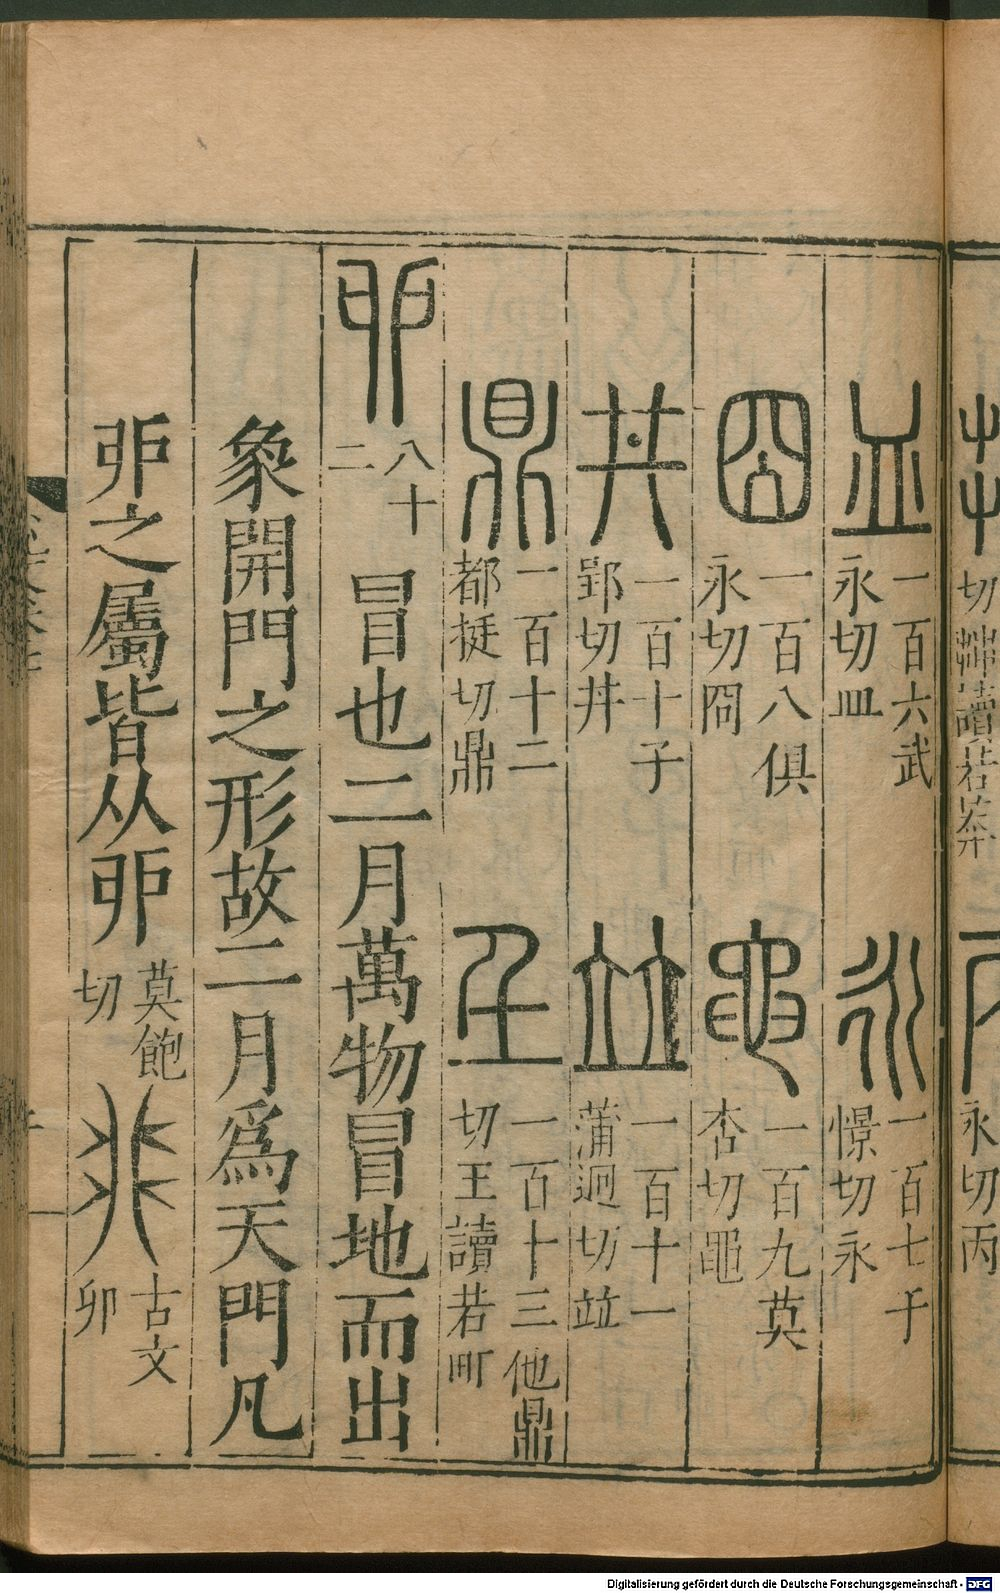 切茻讀若莽
永切丙
皿 一百六武永切皿
永 一百七于憬切永
囧 一百八俱永切冏
黽 一百九莫杏切黽
井 一百十子郢切丼
竝 一百十一蒲迥切竝
鼎 一百十二都挺切鼎
𡈼 一百十三他鼎切王讀若町
戼 八十二 冒也二月萬物冒地而出
象開門之形故二月爲天門凡
戼之屬皆从戼 莫飽切 古文卯
Digitalisierung gefördert durch die Deutsche Forschungsgemeinschaft - DFG